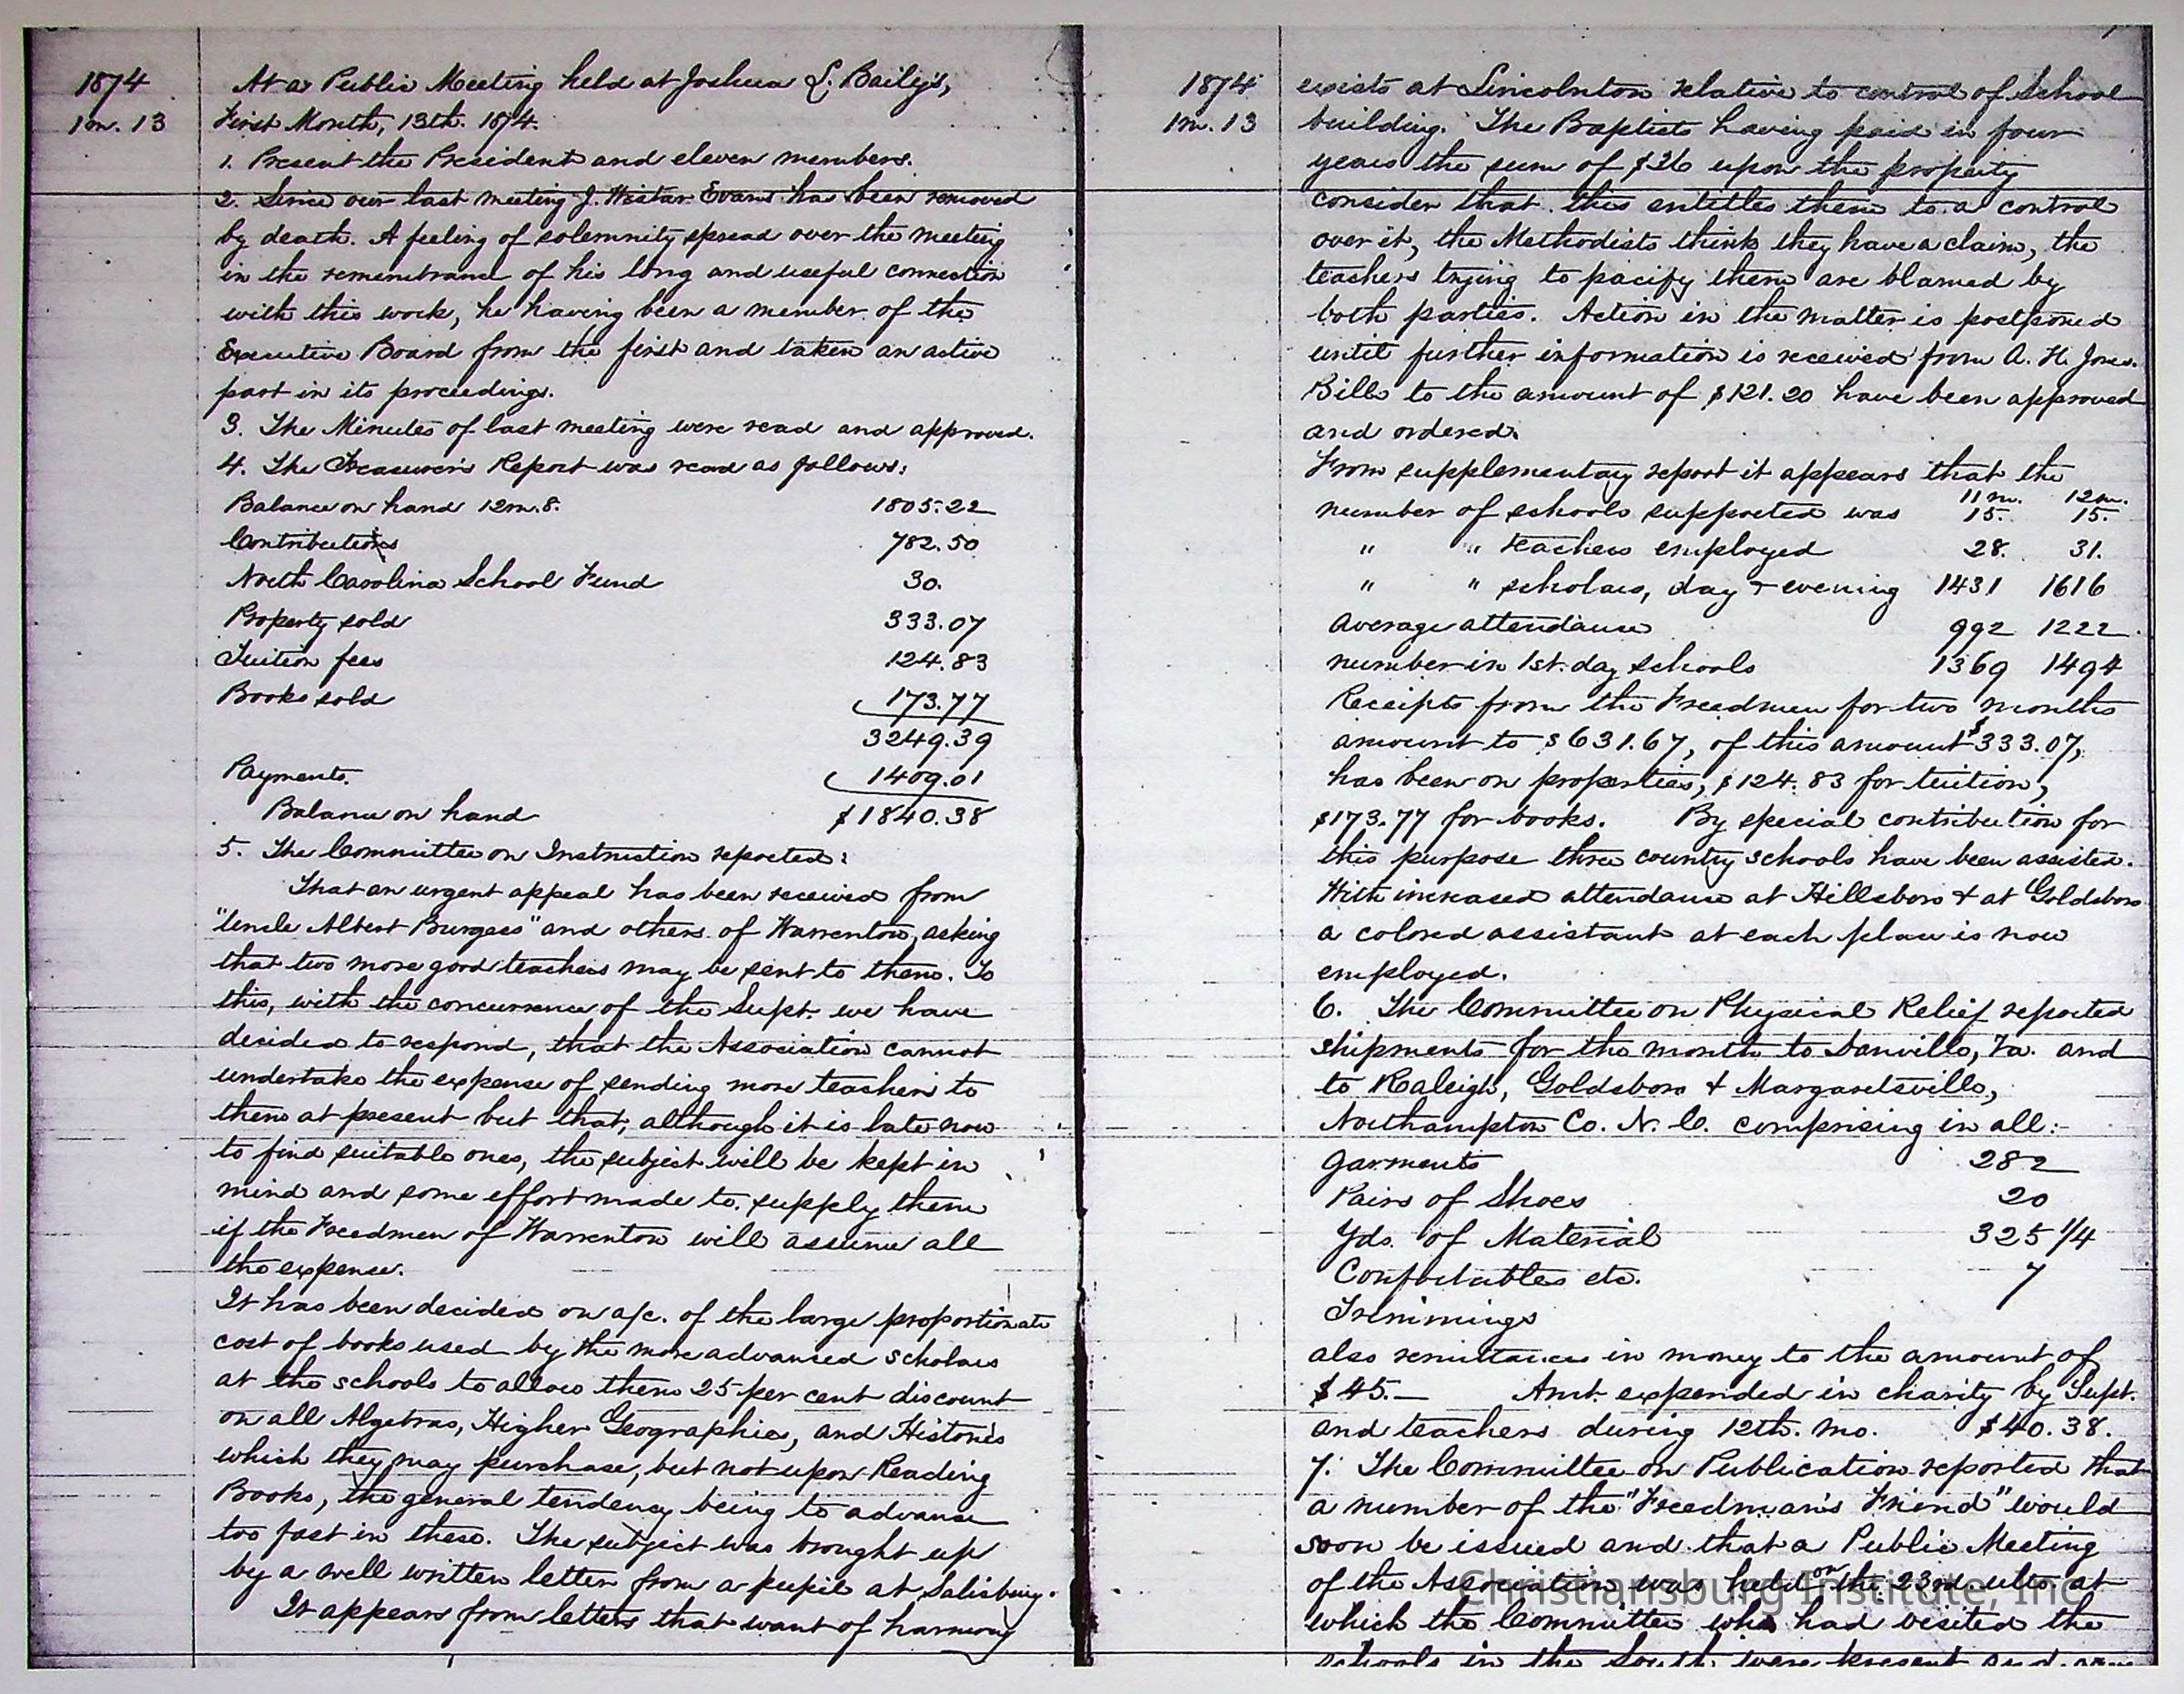 1874
1m. 13
At a Public Meeting held at Joshua L. Baily's,
First Month, 13th. 1874.
1. Present the President and eleven members.
2. Since our last meeting J. Wistar Evans has been removed
by death. A feeling of solemnity spread over the meeting
in the remembrance of his long and useful connection
with this work, he having been a member of the
Executive Board from the first and taken an active
part in its proceedings.
3. The Minutes of last meeting were read and approved.
4. The Treasurer's Report was read as follows:
Balance on hand 12m.8. 1805.22
Contributions 782.50
North Carolina School Fund 30.
Property sold 333.07
Tuition fees 124.83
Books sold 173.77
3249.39
Payments. 1409.01
Balance on hand $1840.38
5. The Committee on Instruction reported:
That an urgent appeal has been received from
"Uncle Albert Burgess" and others of Warrenton, asking
that two more good teachers may be sent to them. To
this, with the concurrence of the Supt. we have
decided to respond, that the Association cannot
undertake the expense of sending more teachers to
them at present but that, although it is late now
to find suitable ones, the subject will be kept in
mind and some effort made to supply them
if the Freedmen of Warrenton will assume all
the expense.
It has been decided on a/c. of the large proportionate
cost of books used by the more advanced scholars
at the schools to allow them 25 per cent discount
on all Algebras, Higher Geographies, and Histories
which they may purchase, but not upon Reading
Books, the general tendency being to advance
too fast in these. The subject was brought up
by a well written letter from a pupil at Salisbury.
It appears from letters that want of harmony
1874
1m. 13
exists at Lincolnton relative to control of School
building. The Baptists having paid in four
years the sum of $26 upon the property
consider that this entitles them to a control
over it, the Methodists think they have a claim, the
teachers trying to pacify them are blamed by
both parties. Action in the matter is postponed
until further information is received from A. H. Jones.
Bills to the amount of $121.20 have been approved
and ordered.
From supplementary report it appears that the
11m. 12m.
number of schools supported was 15. 15.
" " teachers employed 28. 31.
" " scholars, day & evening 1431 1616
Average attendance 992 1222.
number in 1st. day schools 1369 1494
Receipts from the Freedmen for two months
amount to $631.67, of this amount $333.07,
has been on properties, $124.83 for tuition,
$173.77 for books. By special contribution for
this purpose three country schools have been assisted.
With increased attendance at Hillsboro & at Goldsboro
a colored assistant at each place is now
employed.
6. The Committee on Physical Relief reported
shipments for the month to Danville, Va. and
to Raleigh, Goldsboro & Margaretsville,
Northampton Co. N. C. comprising in all:-
Garments 282
Pairs of Shoes 20
Yds. of Material 325 1/4
Comfortables etc. 7
Trimmings
also remittances in money to the amount of
$45.— Amt. expended in charity by Supt.
and teachers during 12th. mo. $40.38.
7. The Committee on Publication reported that
a number of the "Freedman's Friend" would
soon be issued and that a Public Meeting
of the Association was held on the 23rd ulto. at
which the Committee who had visited the
schools in the South were present and
Christiansburg Institute, Inc